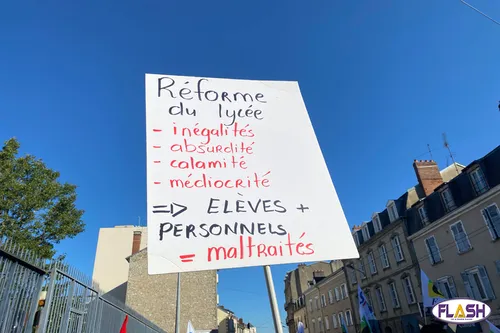 Réforme
du lycée
- inégalités
- absurdité
- calamité
- médiocrité
=> ELÈVES +
PERSONNELS
= maltraités
FLASH